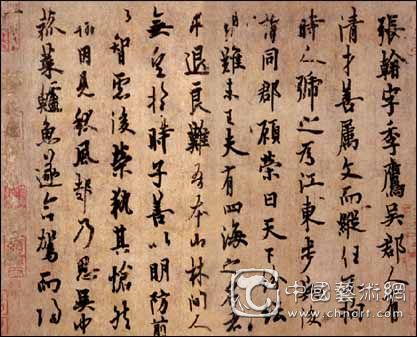 張翰字季鷹吳郡人有
清才善屬文而縱任不
時人號之為江東步兵後
謂同郡顧榮曰天下紛紜
禍難未已夫有四海之名者
求退良難吾本山林間人
無望於時子善以明防前
以智慮後榮執其愴然
翰因見秋風起乃思吳中
菰菜鱸魚遂命駕而歸
中國藝術網
www.chnart.com